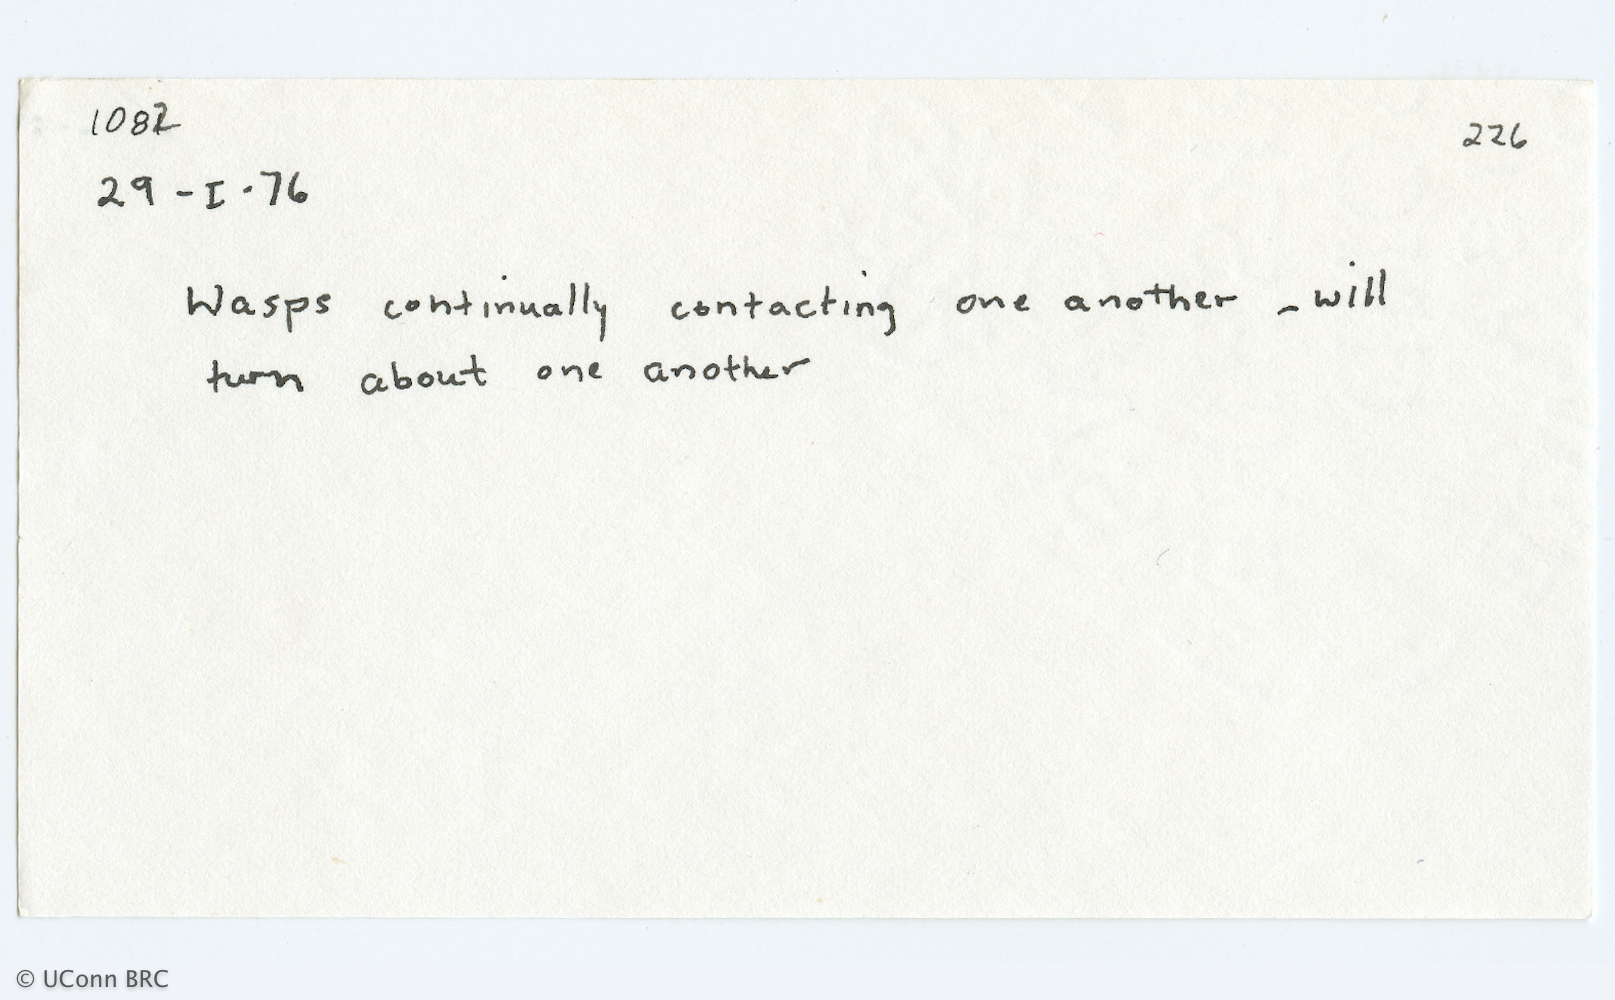 1082
226
29-I-76
Wasps continually contacting one another - will
turn about one another
© UConn BRC